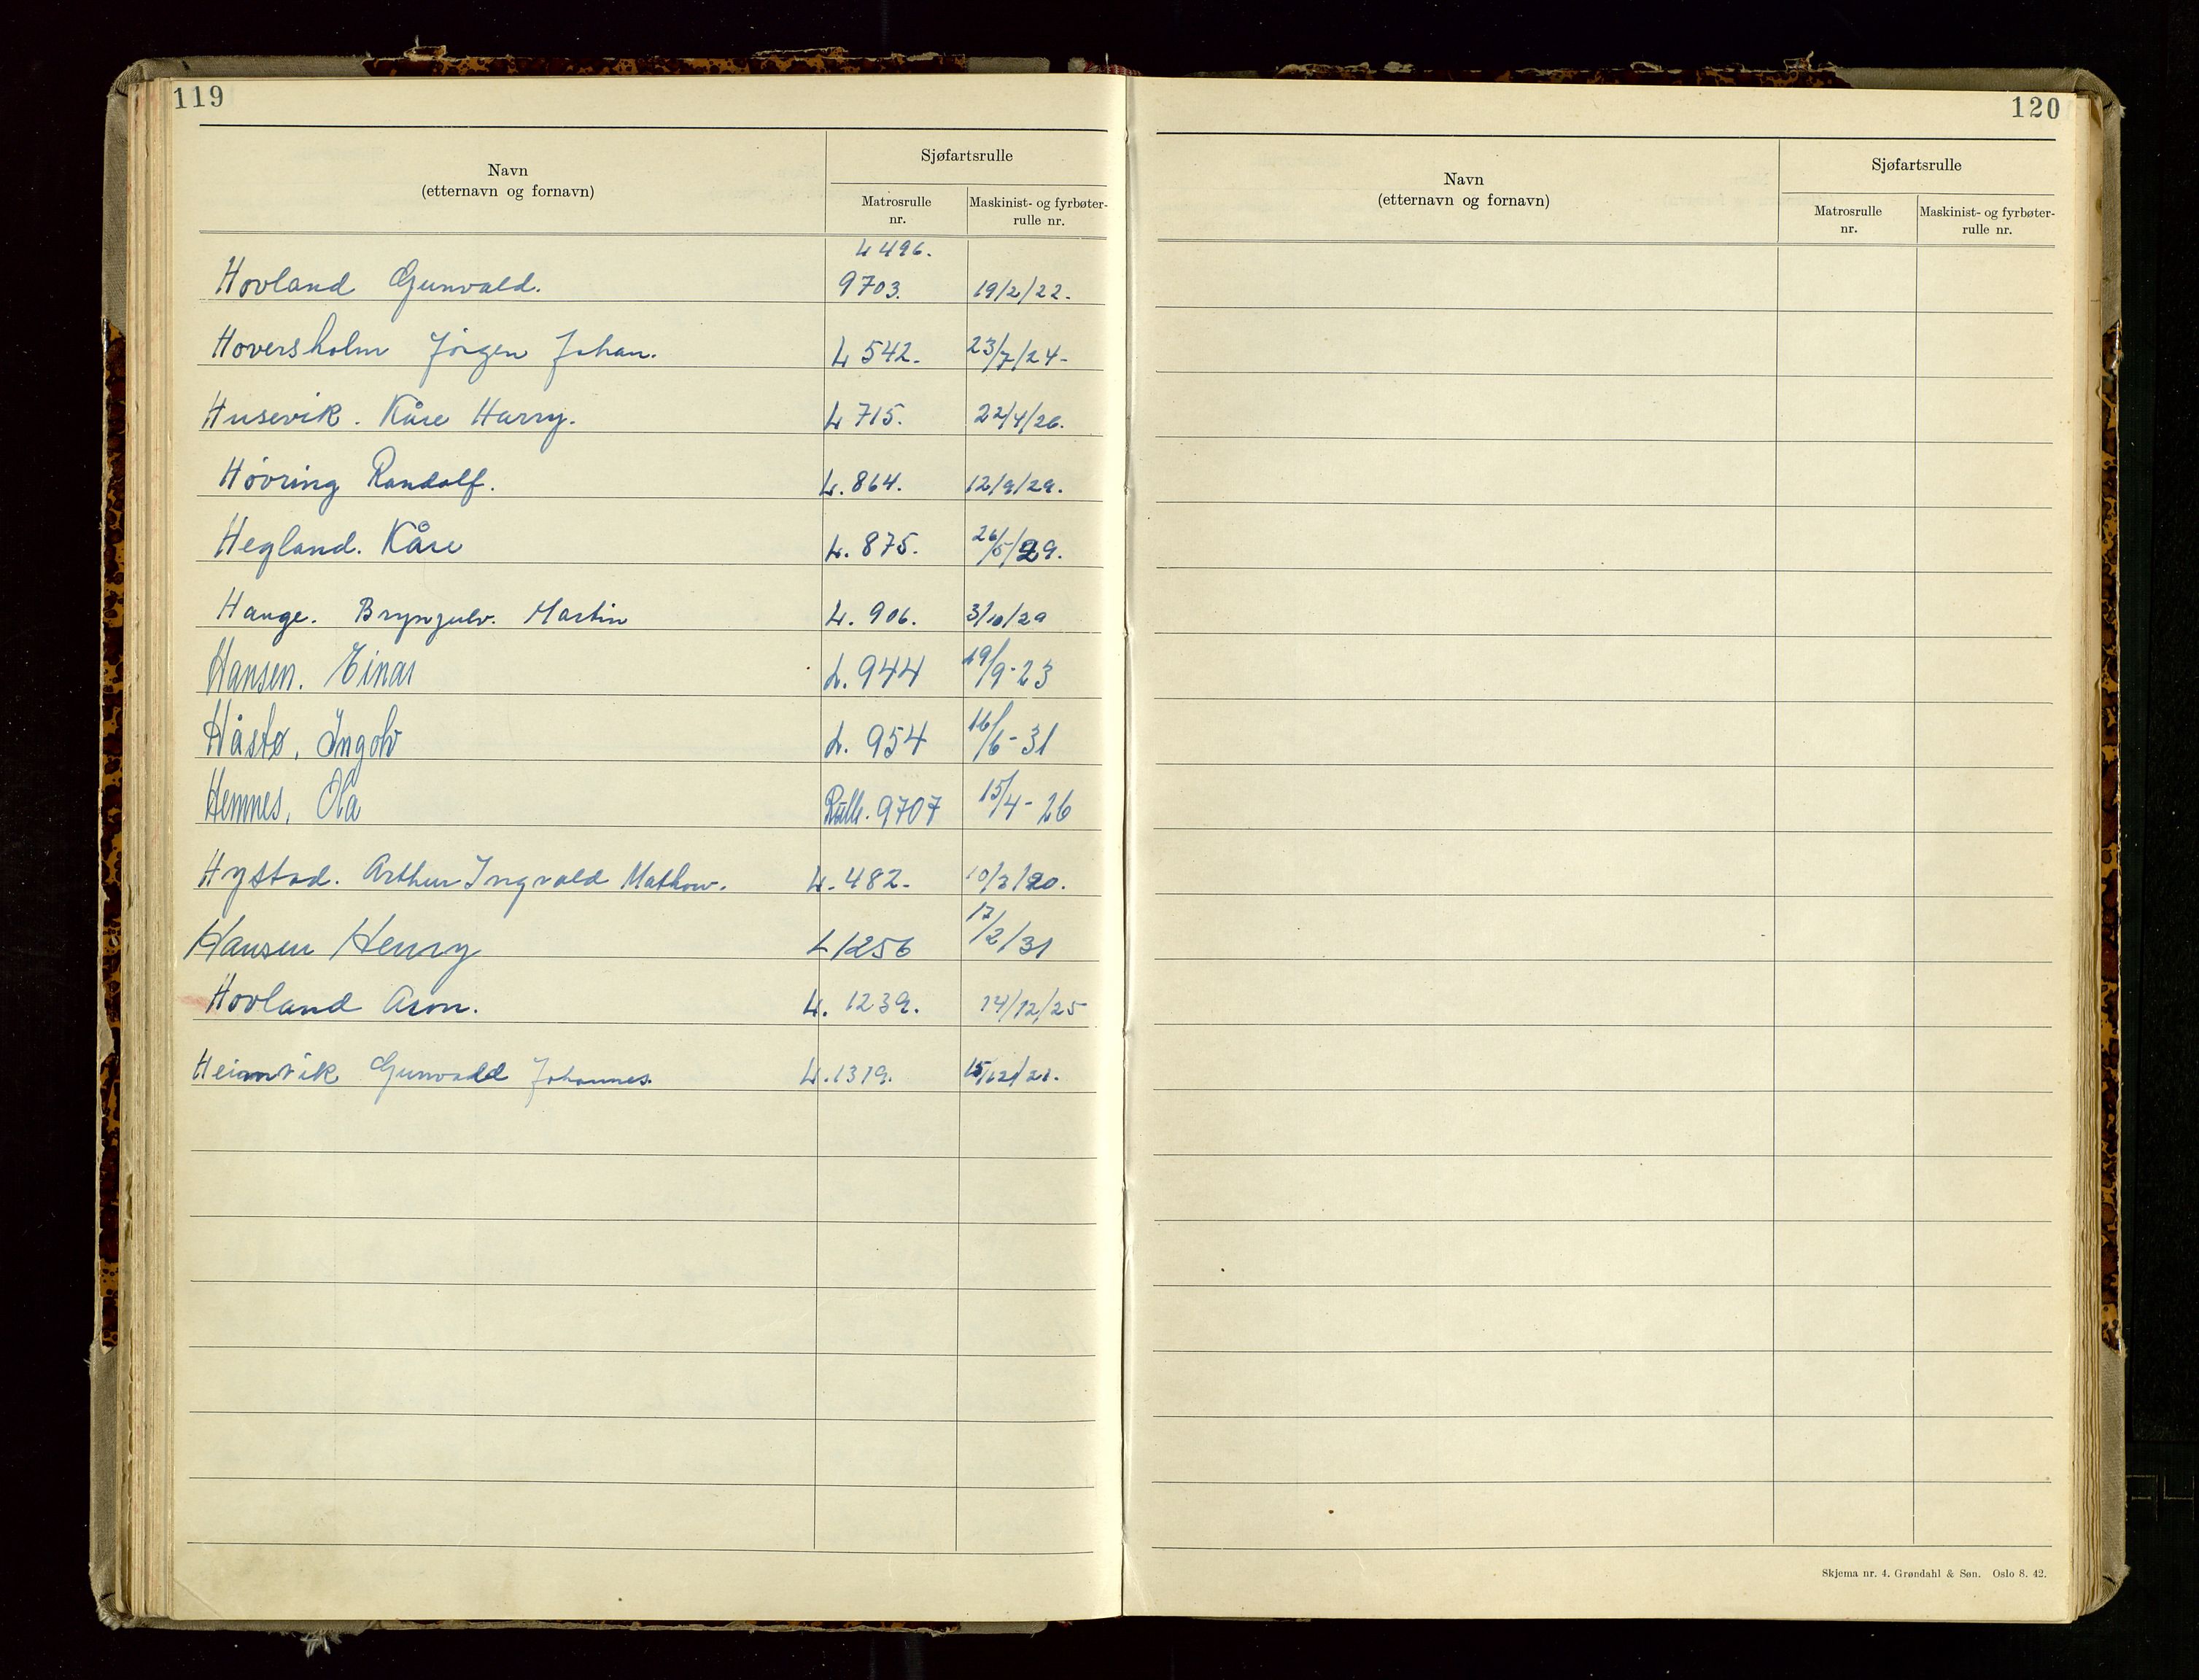 119
Navn
(etternavn og fornavn)
Sjøfartsrulle
Matrosrulle nr.
Maskinist- og fyrbøter-rulle nr.
L 496.
Hovland Gunvald. 9703. 19/2/22.
Hoversholm Jörgen Johan. L 542. 23/7/24-
Husevik. Kåre Harry. L 715. 22/4/26.
Hövring Randolf. L. 864. 12/9/29.
Hegland. Kåre L. 875. 26/5/29.
Hauge. Brynjulv. Martin L. 906. 3/10/29
Hansen. Einar L. 944 19/9-23
Håstø, Ingolv L. 954 16/6-31
Hemnes, Ola Rulle. 9707 15/4-26
Hystad. Arthur Ingvald L. 482. 10/2/20.
Hansen Henry L 1256 17/2/31
Hovland Aron. L. 1239. 14/12/25
Heimvik Gunvald Johannes. L. 1319. 15/12/21.
120
Navn
(etternavn og fornavn)
Sjøfartsrulle
Matrosrulle nr.
Maskinist- og fyrbøter-rulle nr.
Skjema nr. 4. Grøndahl & Søn. Oslo 8. 42.